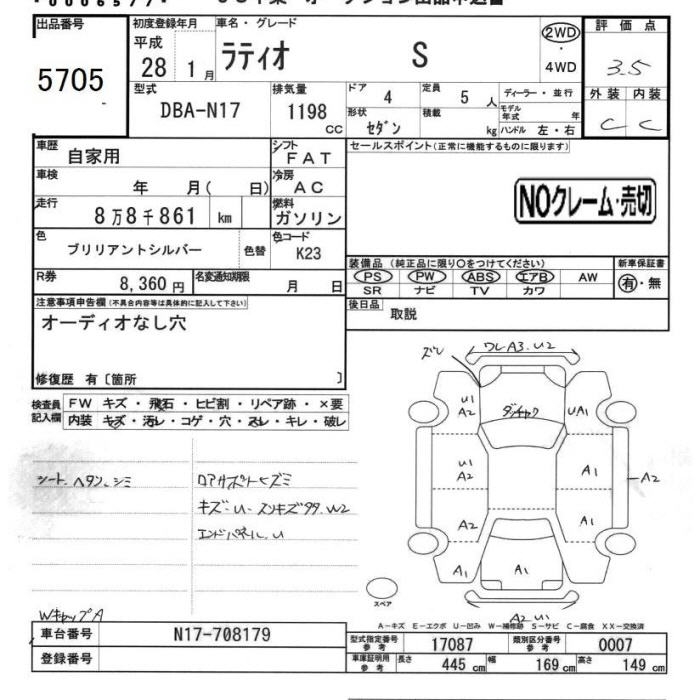 出品番号
5705
初度登録年月
平成
28 1月
車名・グレード
ラティオ S
2WD
・
4WD
評価点
3.5
外装 内装
C C
型式
DBA-N17
排気量
1198
CC
ドア 4
定員 5人
ディーラー・並行
形状 セダン
積載 kg
モデル年式 年
ハンドル 左・右
車歴
自家用
シフト
FAT
セールスポイント(正常に機能するものに限ります)
車検
年 月( 日)
冷房
AC
NOクレーム・売切
走行
8万8千861 km
燃料
ガソリン
色
ブリリアントシルバー
色替
色コード
K23
装備品 (純正品に限り○をつけてください)
新車保証書
PS PW ABS エアB AW
SR ナビ TV カワ
有・無
R券
8,360円
名変通知期限
月 日
後日品
取説
注意事項申告欄(不具合内容等は具体的に記入して下さい)
オーディオなし穴
修復歴 有〔箇所 〕
検査員
記入欄
FW キズ・飛石・ヒビ割・リペア跡・×要
内装 キズ・汚レ・コゲ・穴・スレ・キレ・破レ
シート ヘタン、シミ
ロアサポートヒズミ
エンドパネル U
WキャップA
ズレ
ワレA3.U2
U1
A2
UA1
U1
A2
A1
A2
A2
A1
A1
A
A1
A2 U1
スペア
A-キズ E-エクボ U-凹み W-補修跡 S-サビ C-腐食 XX-交換済
車台番号
N17-708179
登録番号
型式指定番号
参考
17087
類別区分番号
参考
0007
車庫証明用
参考
長さ 445 cm
幅 169 cm
高さ 149 cm